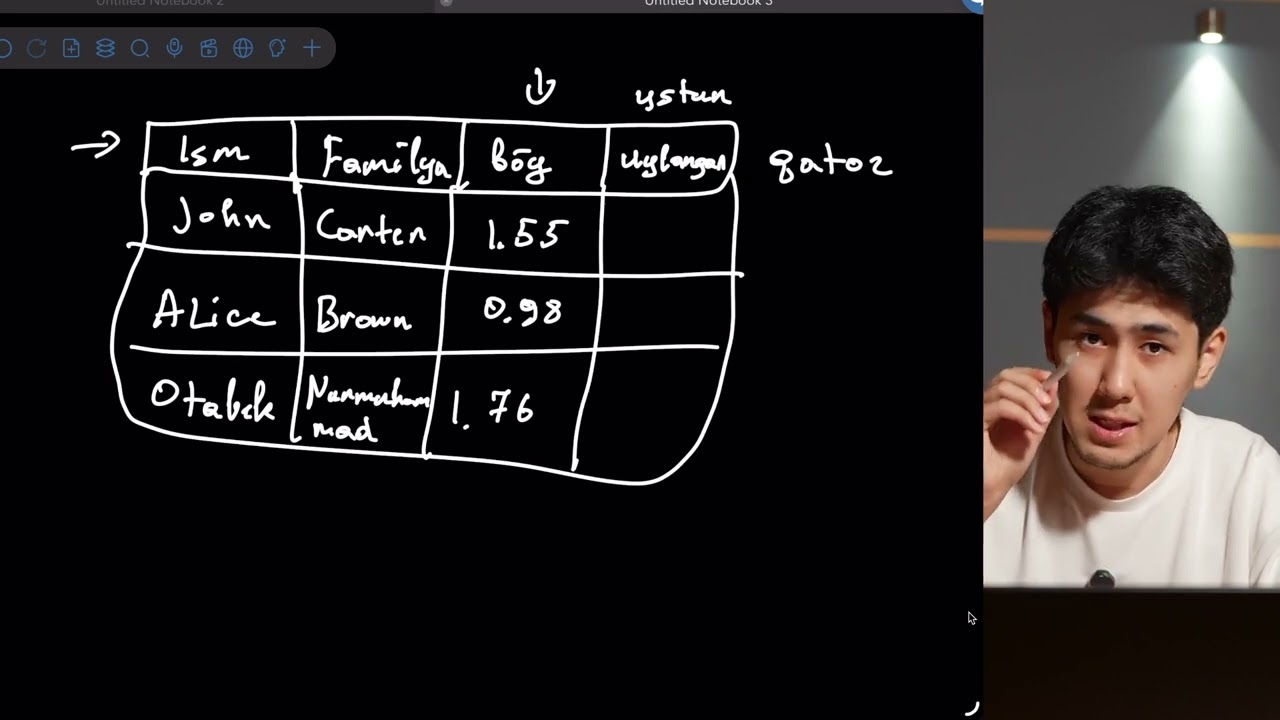 Untitled Notebook 2
Untitled Notebook 3
ustun
Ism Familya Bōy Uylangan qator
John Carter 1.55
ALice Brown 0.98
Otabek Nurmuham 1.76
mad